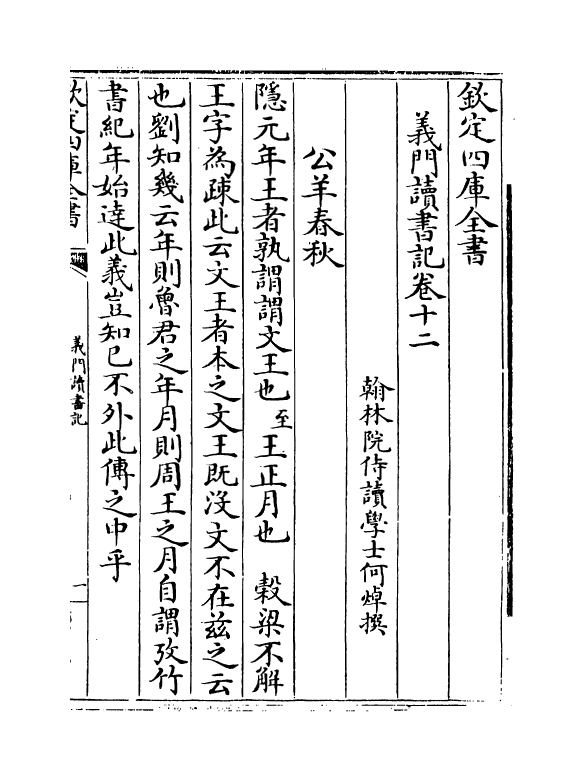 欽定四庫全書
義門讀書記卷十二
翰林院侍讀學士何焯撰
公羊春秋
隱元年王者孰謂謂文王也至王正月也　穀梁不解
王字為疎此云文王者本之文王既沒文不在兹之云
也劉知幾云年則魯君之年月則周王之月自謂攷竹
書紀年始達此義豈知已不外此傳之中乎
欽定四庫全書
義門讀書記
一